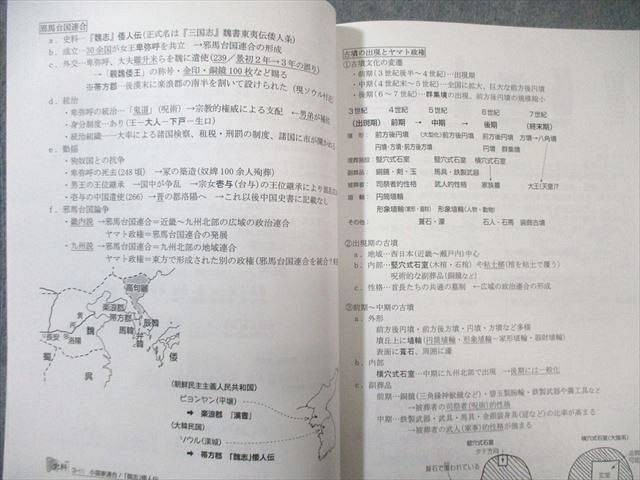 邪馬台国連合
a．史料―『魏志』倭人伝(正式名は『三国志』魏書東夷伝倭人条)
b．成立―30余国が女王卑弥呼を共立 →邪馬台国連合の形成
c．外交―卑弥呼、大夫難升米らを魏に遣使(239／景初2年→3年の誤り)
→「親魏倭王」の称号・金印・銅鏡100枚など賜る
※帯方郡―後漢末に楽浪郡の南半を割いて設けられた(現ソウル付近)
d．統治
・卑弥呼の統治―「鬼道」(呪術)→宗教的権威による支配 ←男弟が補佐
・身分制度―あり(王―大人―下戸―生口)
・統治組織―大率による諸国検察、租税・刑罰の制度、諸国に市が開かれる
e．動揺
・狗奴国との抗争
・卑弥呼の死去(248頃) →冢の築造(奴婢100余人殉葬)
・男王の王位継承 →国中が争乱 →宗女壱与(台与)の王位継承により
・壱与の中国遣使(266) →晋の都洛陽へ →これ以後中国史書に記載なし
f．邪馬台国論争
・畿内説→邪馬台国連合=近畿～九州北部の広域の政治連合
ヤマト政権=邪馬台国連合の発展
・九州説→邪馬台国連合=九州北部の地域連合
ヤマト政権=東方で形成された別の政権(邪馬台国連合を統合?
高句麗
楽浪郡
帯方郡
辰韓
馬韓
弁韓
黄
河
長安
洛陽
魏
蜀
呉
倭
(朝鮮民主主義人民共和国)
ピョンヤン(平壌)
➡ 楽浪郡 『漢書』
(大韓民国)
ソウル(漢城)
➡ 帯方郡 「魏志」倭人伝
史料
小国家連合/「魏志」倭人伝
古墳の出現とヤマト政権
①古墳文化の変遷
・前期(3世紀後半～4世紀)…出現期
・中期(4世紀末～5世紀)…全国に拡大、巨大な前方後円墳
・後期(6～7世紀)…群集墳の出現、前方後円墳の規模縮小
3世紀 4世紀 5世紀 6世紀 7世紀
(出現期) 前期 → 中期 → 後期 (終末期)
墳 形: 前方後円墳 (大型化)前方後円墳 前方後円墳 方墳→八角墳
円墳・方墳・前方後方墳 円墳 群集墳
埋葬施設: 竪穴式石室 竪穴式石室 横穴式石室
副葬品: 銅鏡・剣・玉 馬具・鉄製武器
被葬者: 司祭者的性格 武人的性格 家族墓 大王(天皇)?
埴 輪: 円筒埴輪
形象埴輪(家形・器財) 形象埴輪(人物・動物)
その他: 葺石・濠 石人・石馬 装飾古墳
②出現期の古墳
a．地域…西日本(近畿～瀬戸内)中心
b．内部…竪穴式石室(木棺・石棺)や粘土槨(棺を粘土で覆う)
呪術的な副葬品(銅鏡など)
c．性格…首長たちの共通の墓制 ←広域の政治連合の形成
③前期～中期の古墳
a．外形
前方後円墳・前方後方墳・円墳・方墳など多様
墳丘上に埴輪(円筒埴輪・形象埴輪―家形埴輪・器財埴輪)
表面に葺石、周囲に濠
b．内部
横穴式石室…中期に九州北部で出現 →後期には一般化
c．副葬品
前期…銅鏡(三角縁神獣鏡など)・碧玉製腕輪・鉄製武器や農工具など
→被葬者の司祭者(呪術)的性格
中期…鉄製武器・武具・馬具・金銀装身具(冠など)の比率が高まる
→被葬者の武人(軍事)的性格が強まる
竪穴式石室
タテ方向
葺石で覆われている
横穴式石室(大阪南)
玄室